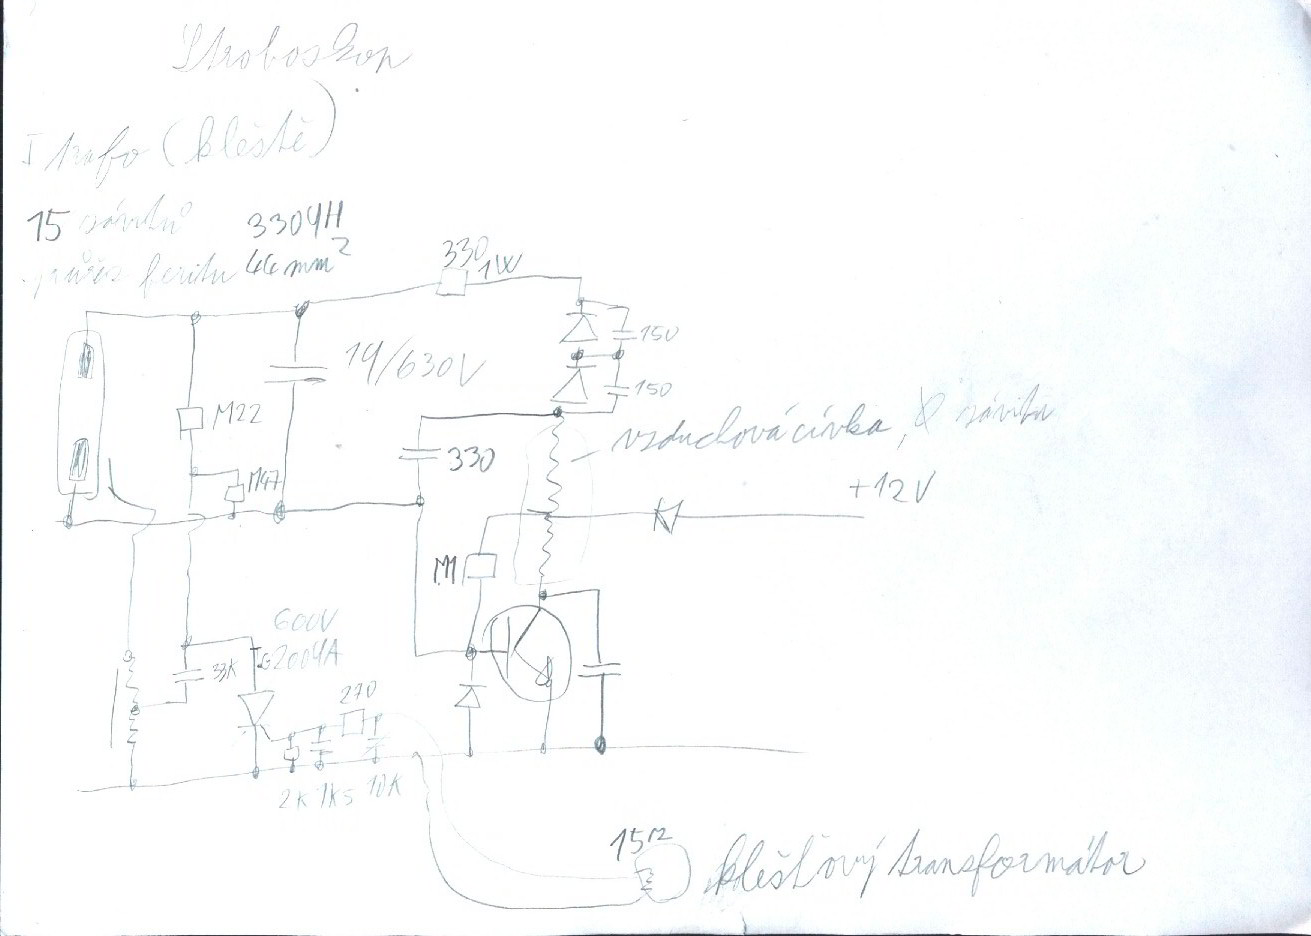 Stroboskop
I trafo (kleště)
15 závitů 330µH
průřez feritu 44 mm²
330
1W
150
1µ/630V
150
M22
vzduchová cívka, závitů
330
M47
+12V
M1
600V
33K
270
2K 1K5 10K
15
klešťový transformátor